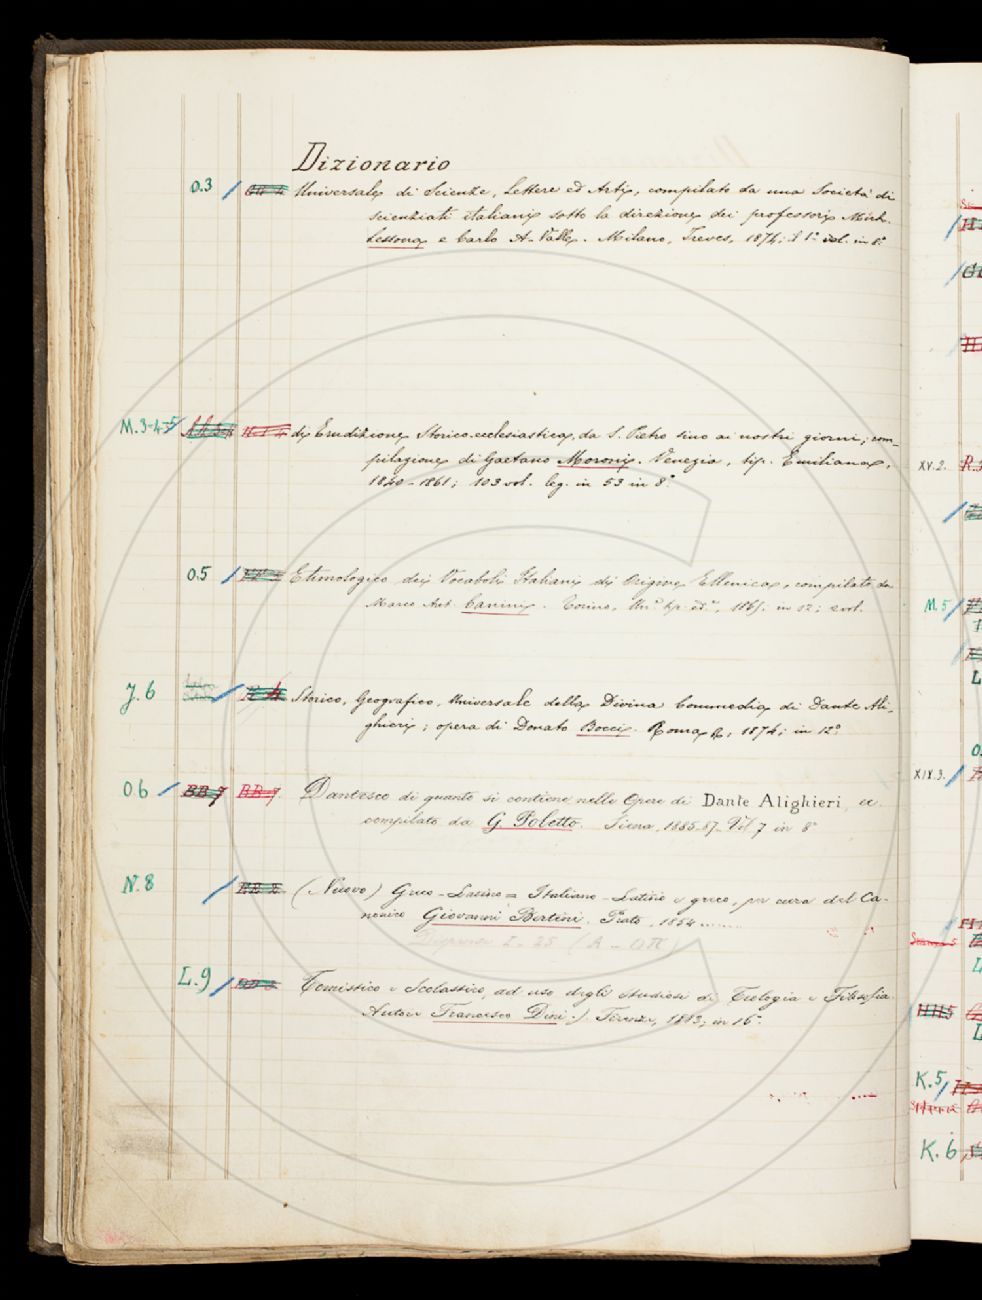 Dizionario
0.3 Universale di Scienze, Lettere ed Arti, compilato da una Società di
scienziati italiani sotto la direzione dei professori Mich.
Lessona e Carlo A. Valle. Milano, Treves, 1874; 1 vol. in 8°
M.3-4-5 di Erudizione Storico-ecclesiastica, da S. Pietro sino ai nostri giorni; com-
pilazione di Gaetano Moroni. Venezia, tip. Emiliana,
1840-1861; 103 vol. leg. in 53 in 8°
0.5 Etimologico dei Vocaboli Italiani di Origine Ellenica, compilato da
Marco Ant. Canini. Torino, Un. tip. ed., 1865; in 12; 2 vol.
J.6 Storico, Geografico, Universale della Divina Commedia di Dante Ali-
ghieri; opera di Donato Bocci. Roma, 1874; in 12°
06 BB7 BB7 Dantesco di quanto si contiene nelle Opere di Dante Alighieri
compilato da G Poletto. Siena, 1885-87. Vol 7 in 8°
N.8 (Nuovo) Greco-Latino = Italiano-Latino e greco, per cura del Ca-
nonico Giovanni Bertini. Prato, 1854
Dispense 1-25
L.9 Tomistico e Scolastico, ad uso degli studiosi di Teologia e Filosofia
Autore Francesco Dini. Firenze, in 16°
XV.2.
M.5
XIX.3.
K.5
K.6